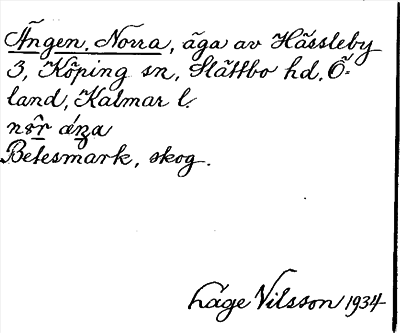 Ängen, Norra, äga av Hässleby
3, Köping sn, Slättbo hd. Ö-
land, Kalmar l.
Betesmark, skog.
Håge Nilsson 1934